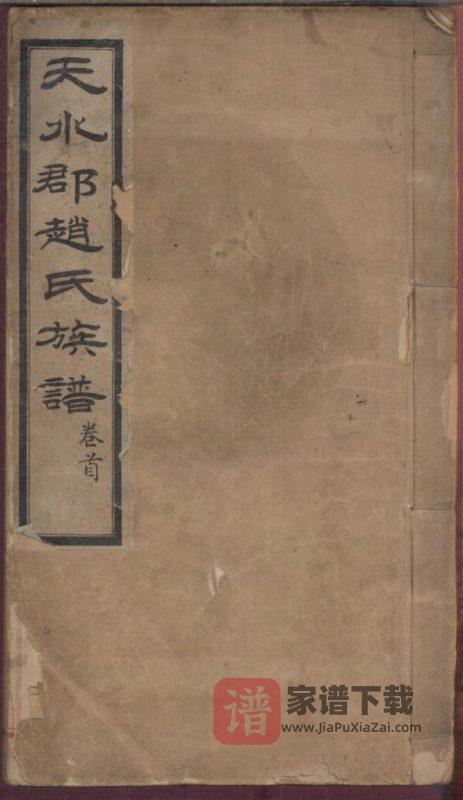 天水郡趙氏族譜
卷首
谱
家谱下载
www.JiaPuXiaZai.com